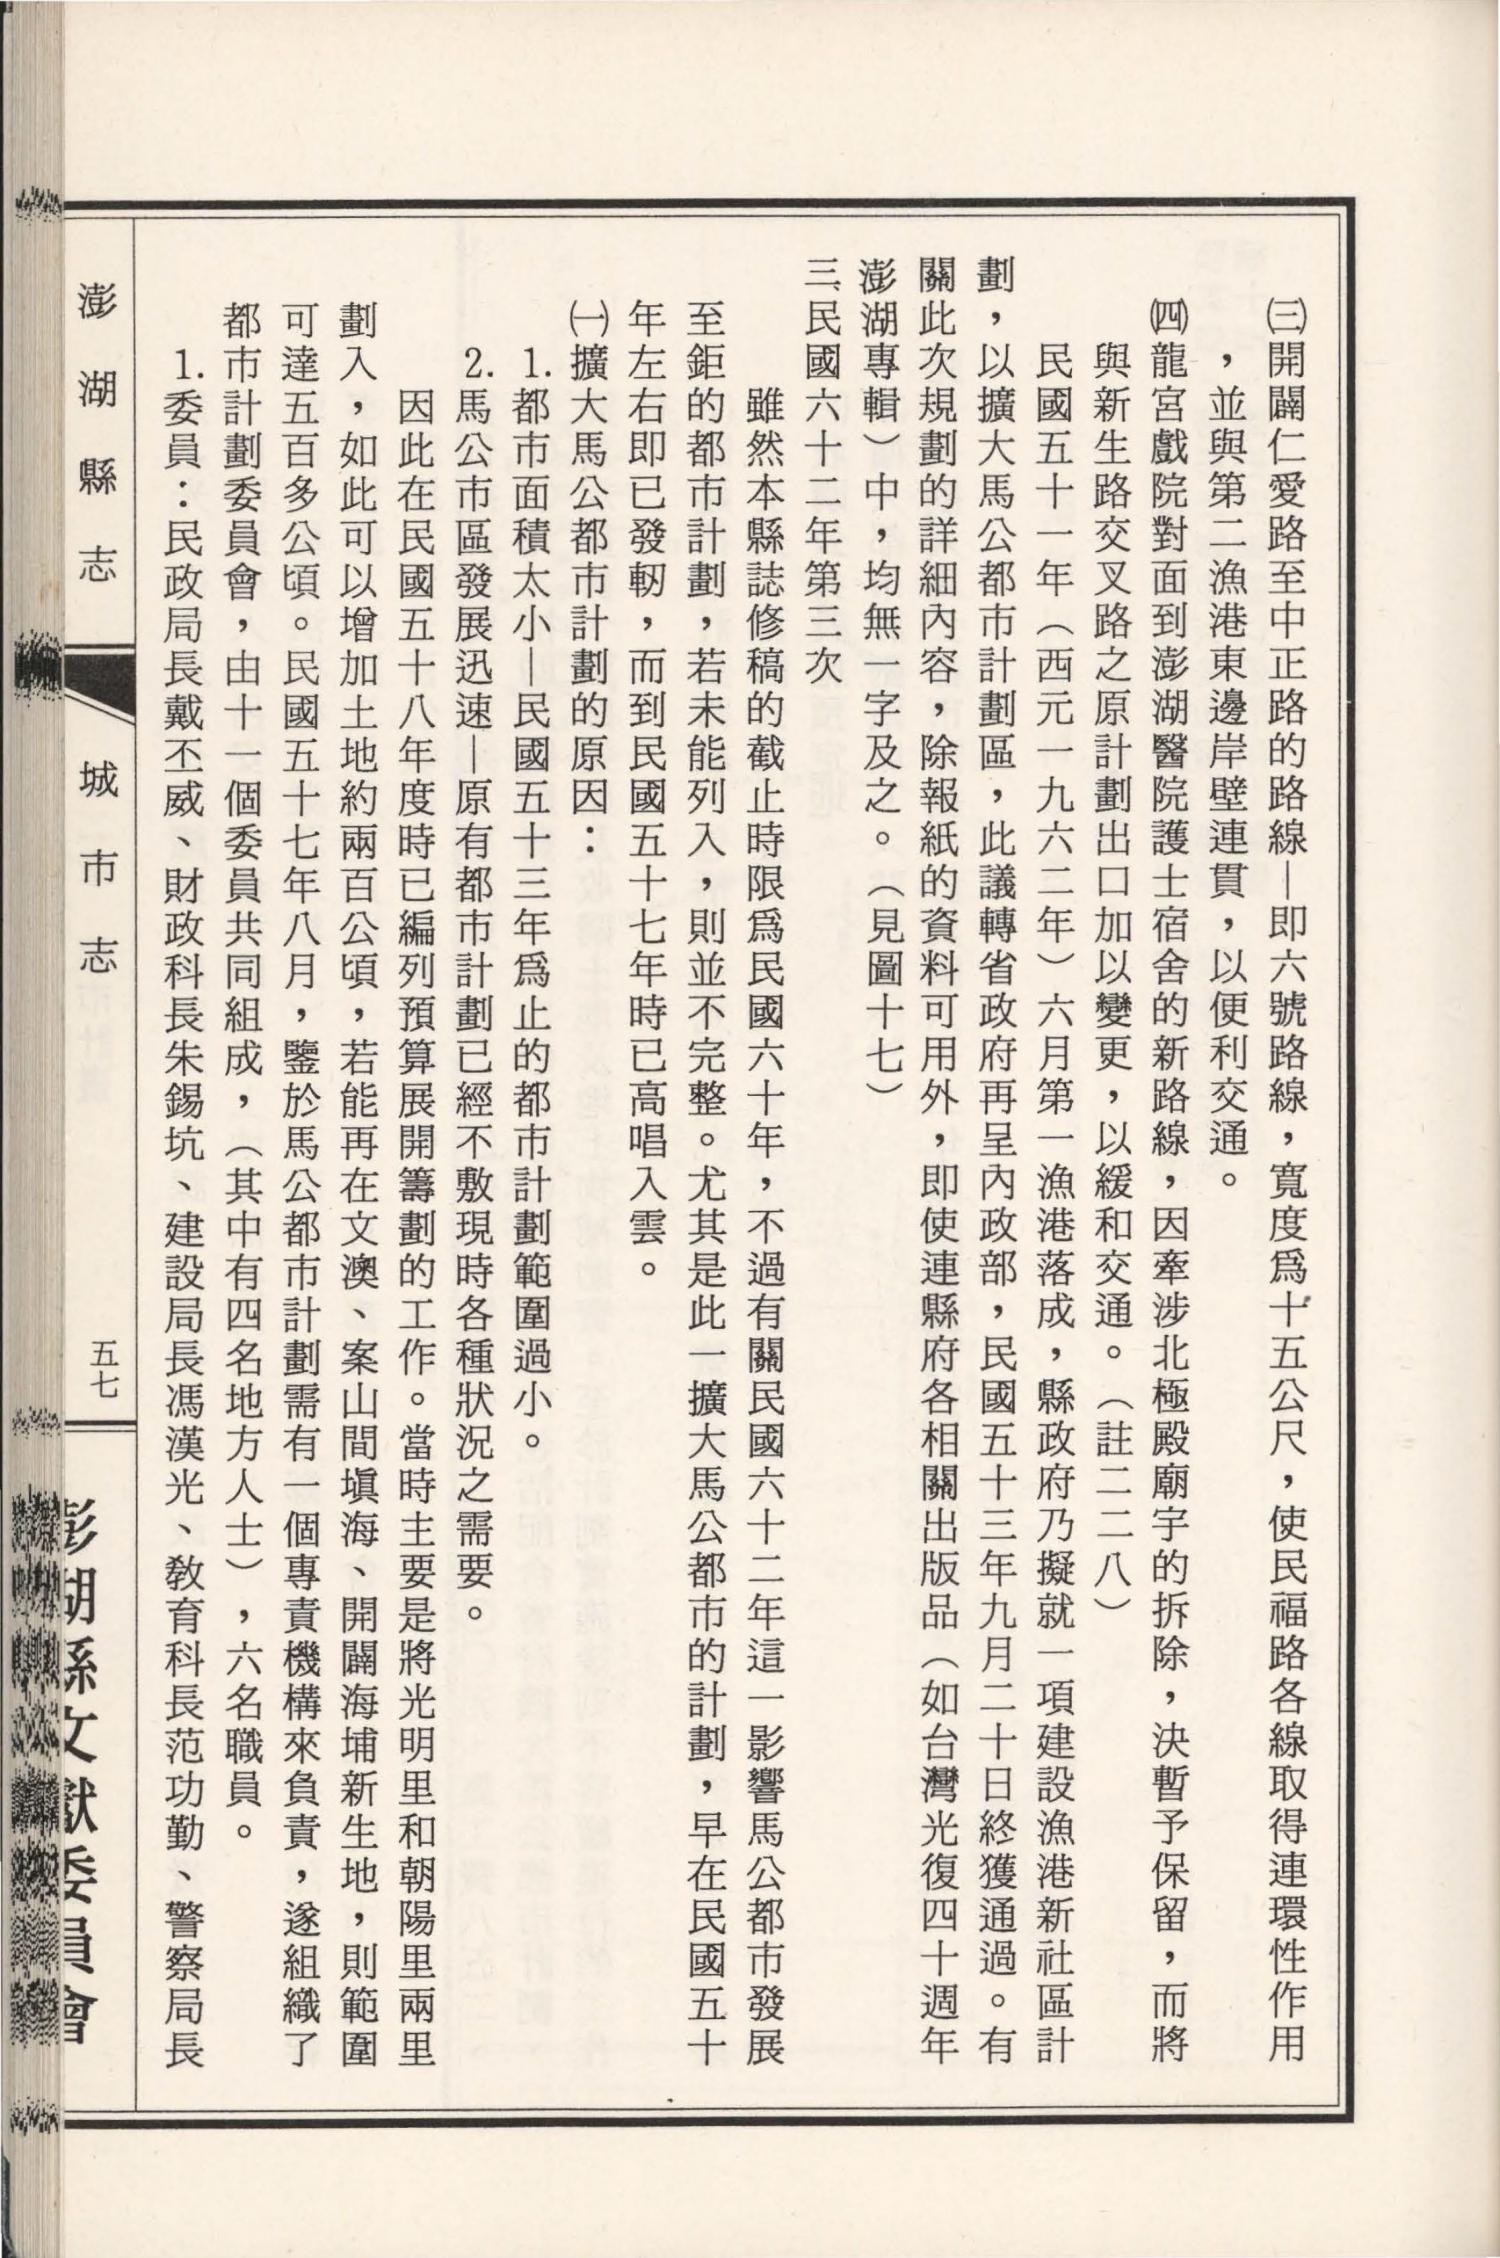 ㈢開闢仁愛路至中正路的路線—即六號路線，寬度爲十五公尺，使民福路各線取得連環性作用
，並與第二漁港東邊岸壁連貫，以便利交通。
㈣龍宮戲院對面到澎湖醫院護士宿舍的新路線，因牽涉北極殿廟宇的拆除，決暫予保留，而將
與新生路交叉路之原計劃出口加以變更，以緩和交通。（註二二八）
民國五十一年（西元一九六二年）六月第一漁港落成，縣政府乃擬就一項建設漁港新社區計
劃，以擴大馬公都市計劃區，此議轉省政府再呈內政部，民國五十三年九月二十日終獲通過。有
關此次規劃的詳細內容，除報紙的資料可用外，即使連縣府各相關出版品（如台灣光復四十週年
澎湖專輯）中，均無一字及之。（見圖十七）
三、民國六十二年第三次
雖然本縣誌修稿的截止時限爲民國六十年，不過有關民國六十二年這一影響馬公都市發展
至鉅的都市計劃，若未能列入，則並不完整。尤其是此一擴大馬公都市的計劃，早在民國五十
年左右即已發軔，而到民國五十七年時已高唱入雲。
㈠擴大馬公都市計劃的原因：
1.都市面積太小—民國五十三年爲止的都市計劃範圍過小。
2.馬公市區發展迅速—原有都市計劃已經不敷現時各種狀況之需要。
因此在民國五十八年度時已編列預算展開籌劃的工作。當時主要是將光明里和朝陽里兩里
劃入，如此可以增加土地約兩百公頃，若能再在文澳、案山間塡海、開闢海埔新生地，則範圍
可達五百多公頃。民國五十七年八月，鑒於馬公都市計劃需有一個專責機構來負責，遂組織了
都市計劃委員會，由十一個委員共同組成，（其中有四名地方人士），六名職員。
1.委員：民政局長戴丕威、財政科長朱錫坑、建設局長馮漢光、教育科長范功勤、警察局長
澎湖縣志
城市志
五七
澎湖縣文獻委員會